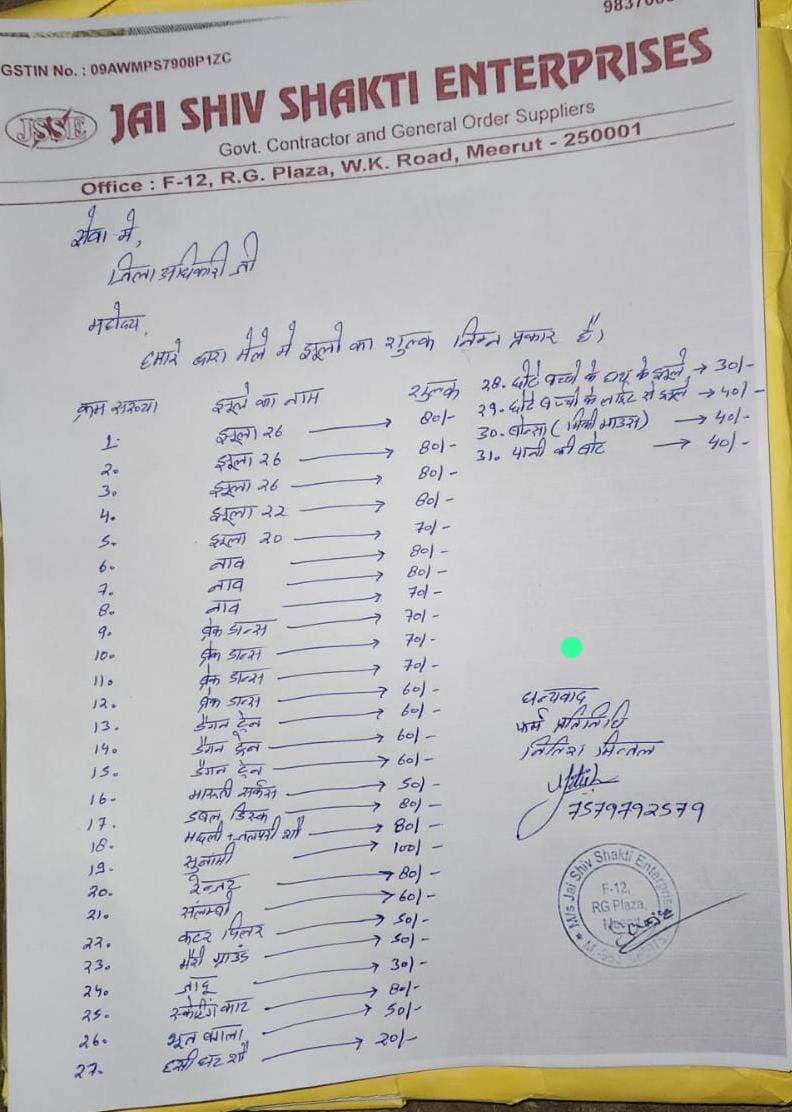 GSTIN No. : 09AWMPS7908P1ZC
JSSE
JAI SHIV SHAKTI ENTERPRISES
Govt. Contractor and General Order Suppliers
Office : F-12, R.G. Plaza, W.K. Road, Meerut - 250001
सेवा मे,
जिला अधिकारी जी
महोदय,
हमारे द्वारा मेले मे झूलो का शुल्क निम्न प्रकार है।
क्रम संख्या झूले का नाम शुल्क
1. झूला 26 → 80/-
2. झूला 26 → 80/-
3. झूला 26 → 80/-
4. झूला 22 → 80/-
5. झूला 20 → 70/-
6. नाव → 80/-
7. नाव → 80/-
8. नाव → 70/-
9. ब्रेक डान्स → 70/-
10. ब्रेक डान्स → 70/-
11. ब्रेक डान्स → 70/-
12. ब्रेक डान्स → 60/-
13. ड्रैगन ट्रेन → 60/-
14. ड्रैगन ट्रेन → 60/-
15. ड्रैगन ट्रेन → 60/-
16. मारुती सर्कस → 50/-
17. डबल डिस्क → 80/-
18. मछली + जलपरी शौ → 80/-
19. सुनामी → 100/-
20. रेन्जर → 80/-
21. सलम्बो → 60/-
22. कटर पिलर → 50/-
23. मैरी ग्राउंड → 50/-
24. जादू → 30/-
25. स्केटिंग कार → 80/-
26. भूत बगला → 50/-
27. हसी घर शौ → 20/-
28. छोटे बच्चो के हाथ के झूले → 30/-
29. छोटे बच्चो के लाईट से झूले → 40/-
30. बोन्सी (मिकी माउस) → 40/-
31. पानी की बोट → 40/-
धन्यवाद
फर्म प्रतिनिधि
नितिश मित्तल
7579792579
M/s Jai Shiv Shakti Enterprises
F-12,
RG Plaza,
Meerut